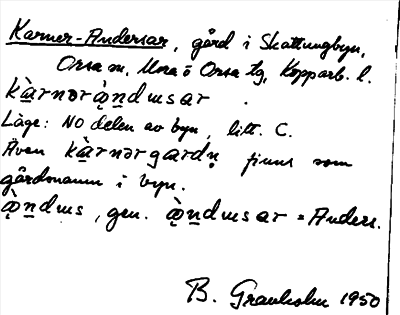 Karner-Andersar, gård i Skattungbyn,
Orsa sn, Mora o Orsa tg, Kopparb. l.
kàrnərą̀ndɯsar .
Läge: NO delen av byn, litt. C.
Även kàrnərgardṇ finns som
gårdsnamn i byn.
ą̀ndɯs, gen. ą̀ndɯsar = Anders.
B. Granholm 1950